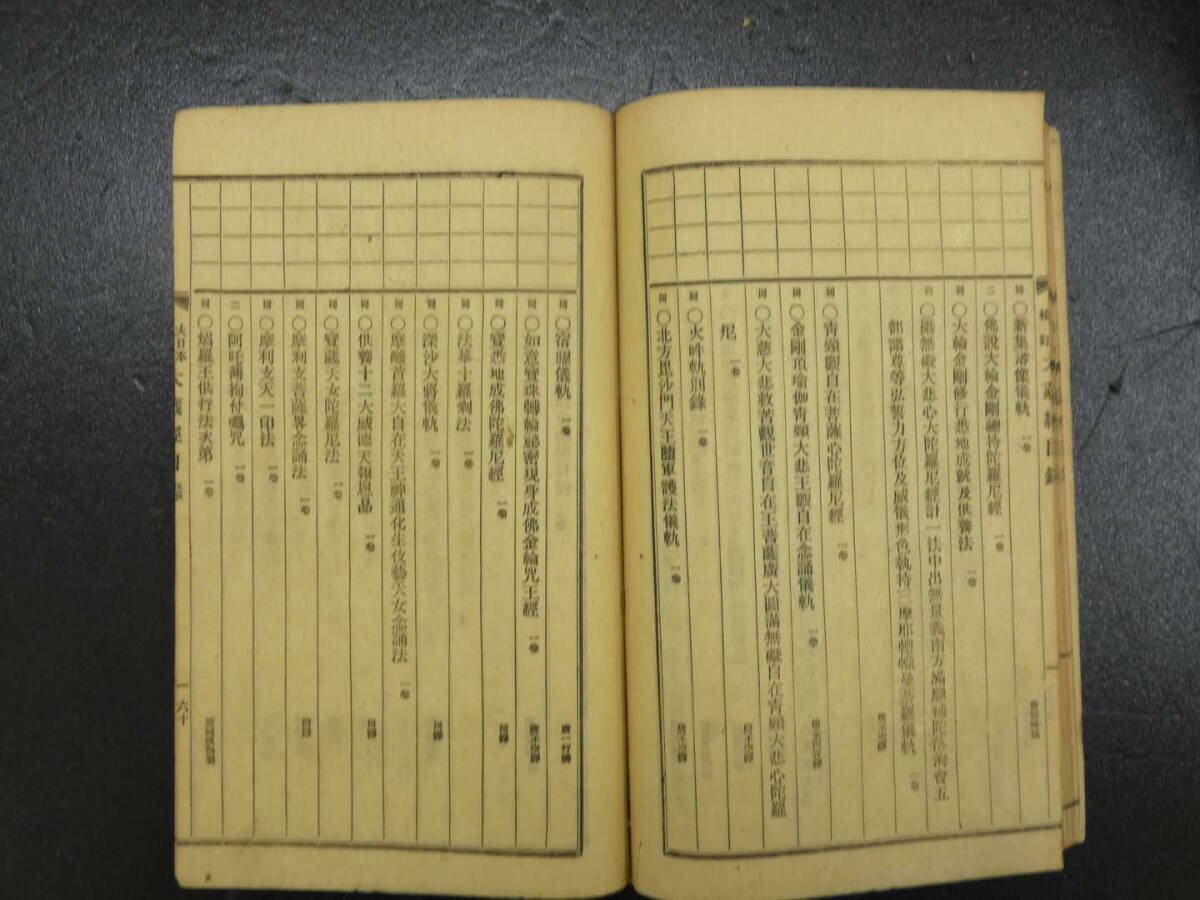 同 ○新集浴像儀軌 一卷
三 ○佛說大輪金剛總持陀羅尼經 一卷
同 ○大輪金剛修行悉地成就及供養法 一卷
同 ○攝無礙大悲心大陀羅尼經計一法中出無量義南方滿願補陀落海會五
部諸尊等弘誓力方位及威儀形色執持三摩耶幖幟曼荼羅儀軌 一卷 唐不空譯
同 ○青頸觀自在菩薩心陀羅尼經 一卷 唐不空譯
同 ○金剛頂瑜伽青頸大悲王觀自在念誦儀軌 一卷 唐金剛智譯
同 ○大慈大悲救苦觀世音自在王菩薩廣大圓滿無礙自在青頸大悲心陀羅
尼 一卷 唐不空譯
同 ○火吽軌別錄 一卷
同 ○北方毘沙門天王隨軍護法儀軌 一卷 唐不空譯
同 ○宿曜儀軌 一卷 唐一行撰
同 ○如意寶珠轉輪祕密現身成佛金輪咒王經 一卷 唐不空譯
同 ○寶悉地成佛陀羅尼經 一卷 同譯
同 ○法華十羅刹法 一卷
同 ○深沙大將儀軌 一卷 同譯
同 ○摩醯首羅大自在天王神通化生伎藝天女念誦法 一卷
同 ○供養十二大威德天報恩品 一卷 同譯
同 ○寶藏天女陀羅尼法 一卷
同 ○摩利支菩薩畧念誦法 一卷 同譯
同 ○摩利支天一印法 一卷
三 ○阿吒薄拘付囑咒 一卷
同 ○焰羅王供行法次第 一卷
大藏經目錄
六十一